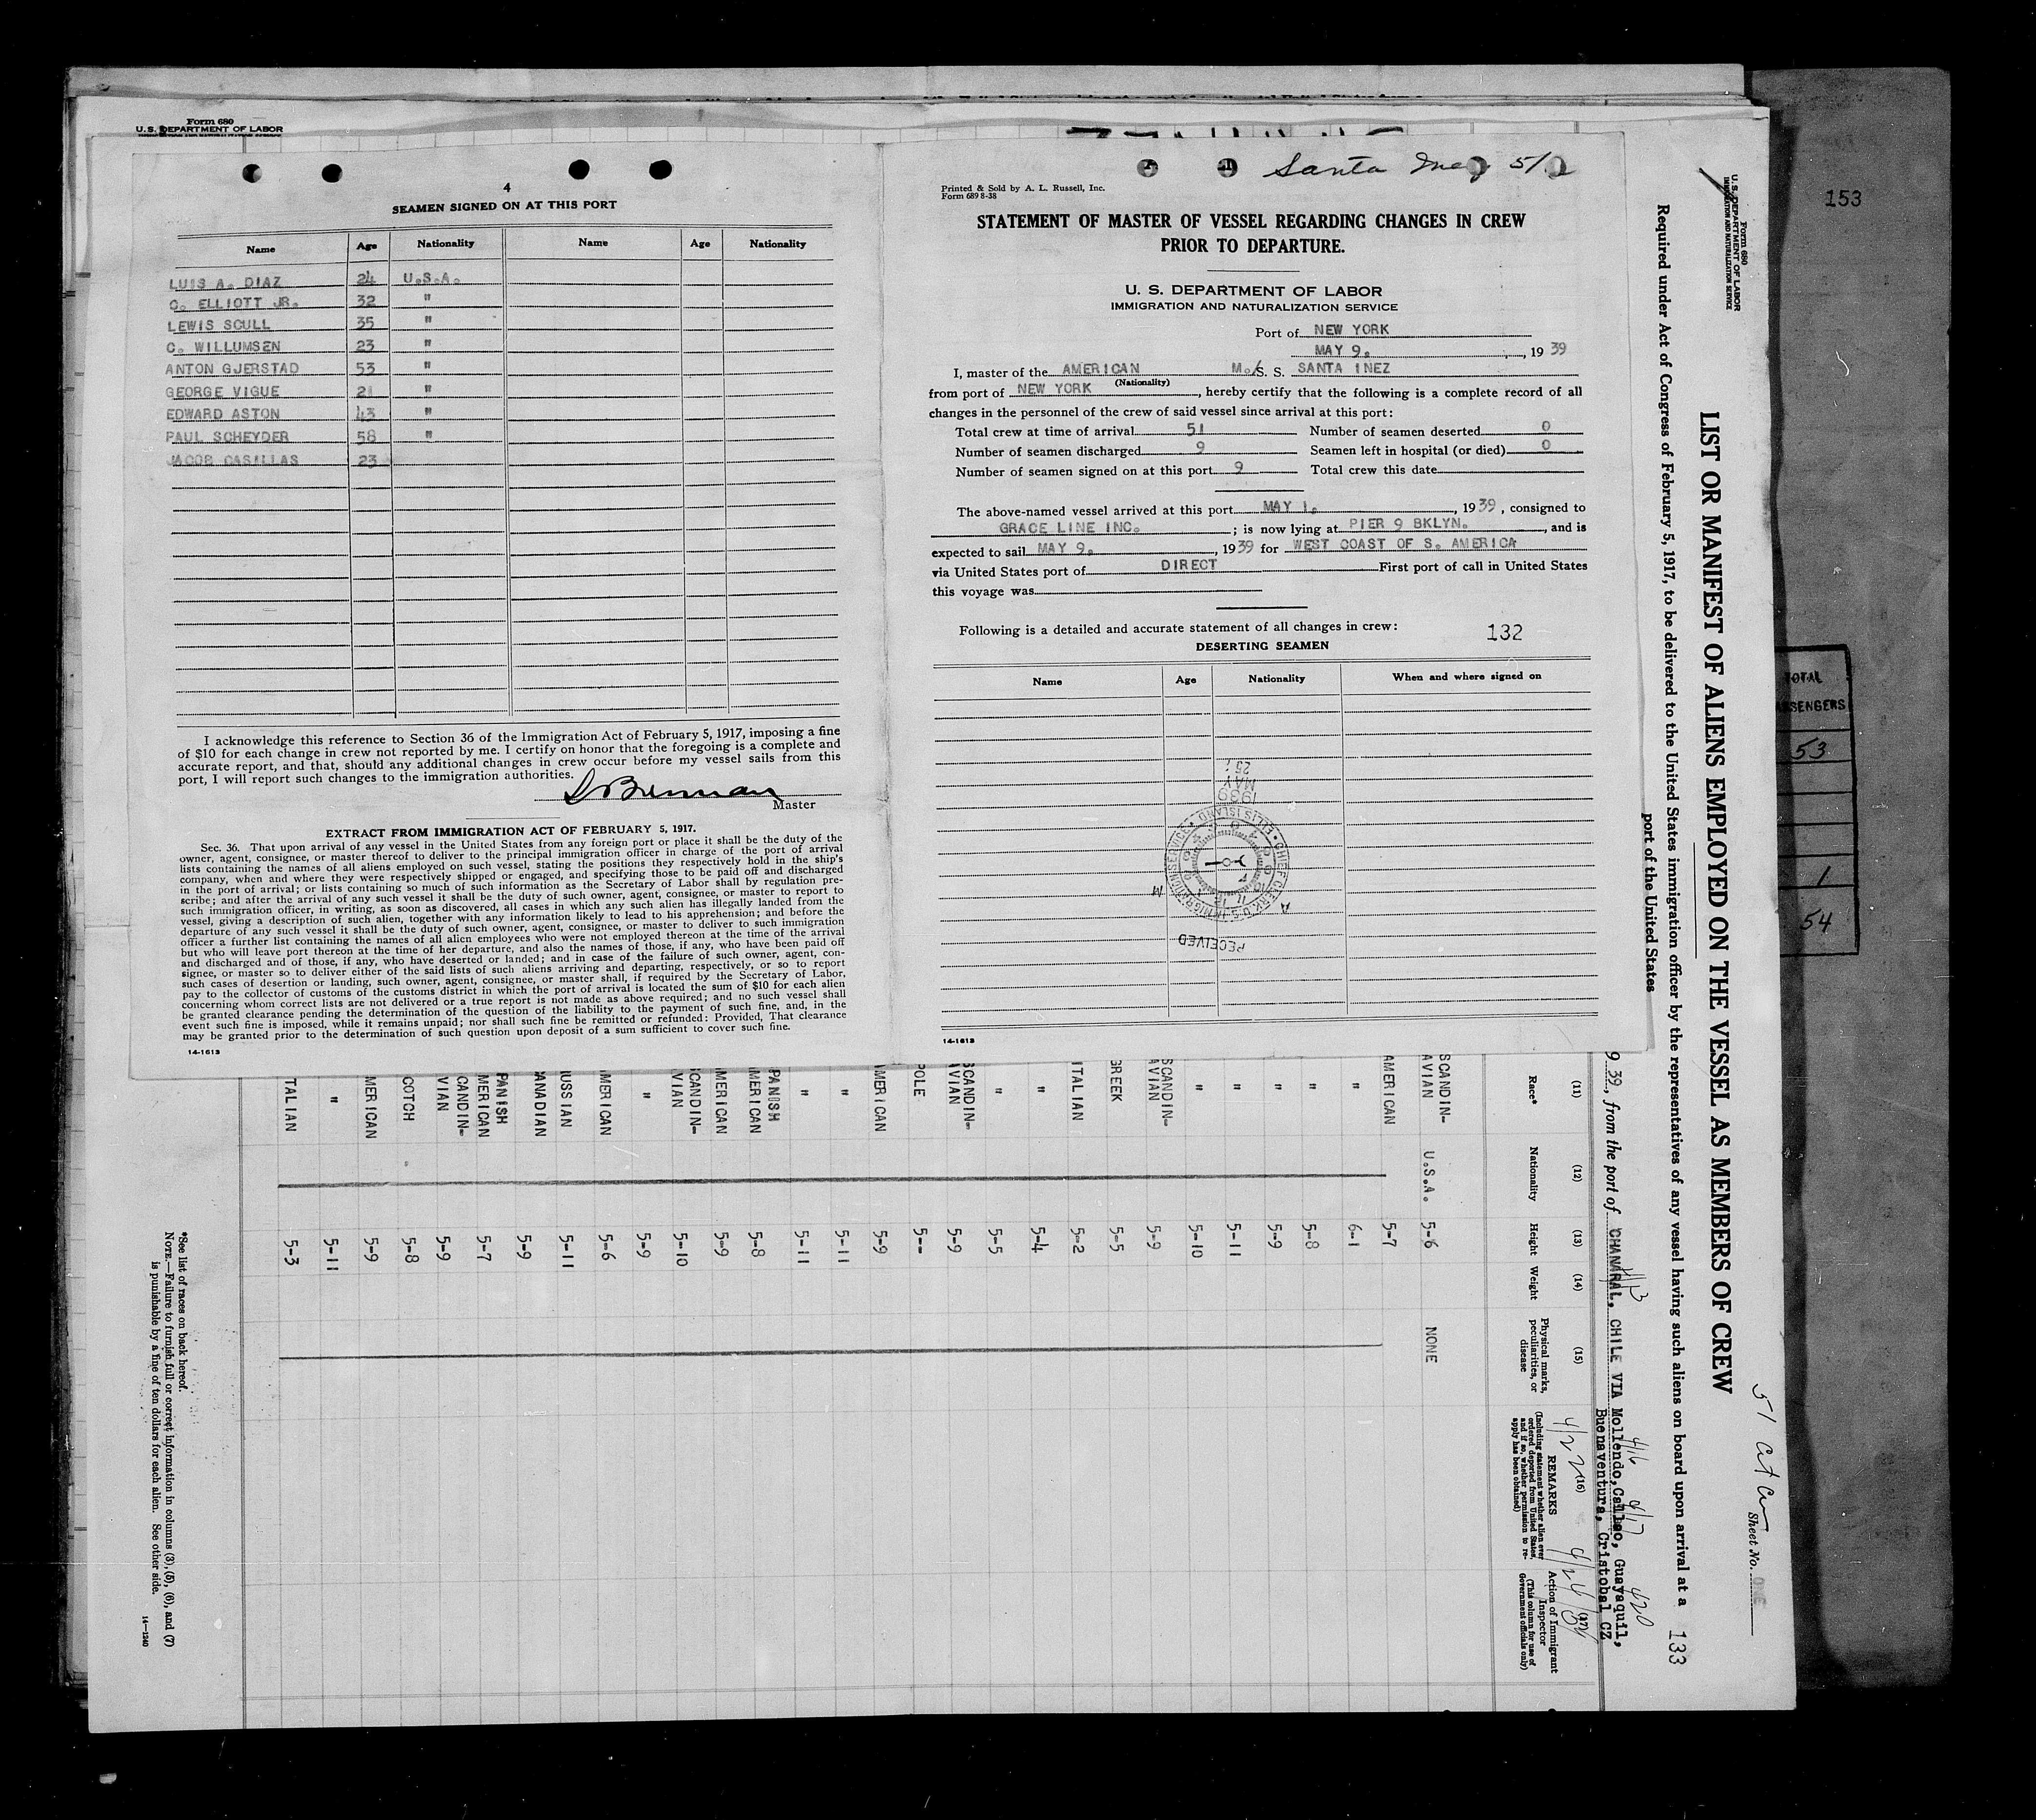 Form 680
U.S. DEPARTMENT OF LABOR
4
SEAMEN SIGNED ON AT THIS PORT
Name Age Nationality Name Age Nationality
LUIS A. DIAZ 24 U.S.A.
C. ELLIOTT JR. 32 "
LEWIS SCULL 35 "
C. WILLUMSEN 23 "
ANTON GJERSTAD 53 "
GEORGE VIGUE 21 "
EDWARD ASTON 43 "
PAUL SCHEYDER 58 "
JACOB CASILLAS 23
I acknowledge this reference to Section 36 of the Immigration Act of February 5, 1917, imposing a fine
of $10 for each change in crew not reported by me. I certify on honor that the foregoing is a complete and
accurate report, and that, should any additional changes in crew occur before my vessel sails from this
port, I will report such changes to the immigration authorities.
Master
EXTRACT FROM IMMIGRATION ACT OF FEBRUARY 5, 1917.
Sec. 36. That upon arrival of any vessel in the United States from any foreign port or place it shall be the duty of the
owner, agent, consignee, or master thereof to deliver to the principal immigration officer in charge of the port of arrival
lists containing the names of all aliens employed on such vessel, stating the positions they respectively hold in the ship's
company, when and where they were respectively shipped or engaged, and specifying those to be paid off and discharged
in the port of arrival; or lists containing so much of such information as the Secretary of Labor shall by regulation pre-
scribe; and after the arrival of any such vessel it shall be the duty of such owner, agent, consignee, or master to report to
such immigration officer, in writing, as soon as discovered, all cases in which any such alien has illegally landed from the
vessel, giving a description of such alien, together with any information likely to lead to his apprehension; and before the
departure of any such vessel it shall be the duty of such owner, agent, consignee, or master to deliver to such immigration
officer a further list containing the names of all alien employees who were not employed thereon at the time of the arrival
but who will leave port thereon at the time of her departure, and also the names of those, if any, who have been paid off
and discharged and of those, if any, who have deserted or landed; and in case of the failure of such owner, agent, con-
signee, or master so to deliver either of the said lists of such aliens arriving and departing, respectively, or so to report
such cases of desertion or landing, such owner, agent, consignee, or master shall, if required by the Secretary of Labor,
pay to the collector of customs of the customs district in which the port of arrival is located the sum of $10 for each alien
concerning whom correct lists are not delivered or a true report is not made as above required; and no such vessel shall
be granted clearance pending the determination of the question of the liability to the payment of such fine, and, in the
event such fine is imposed, while it remains unpaid; nor shall such fine be remitted or refunded: Provided, That clearance
may be granted prior to the determination of such question upon deposit of a sum sufficient to cover such fine.
14-1613
Santa Inez
Printed & Sold by A. L. Russell, Inc.
Form 689 8-38
STATEMENT OF MASTER OF VESSEL REGARDING CHANGES IN CREW
PRIOR TO DEPARTURE.
U. S. DEPARTMENT OF LABOR
IMMIGRATION AND NATURALIZATION SERVICE
Port of NEW YORK
MAY 9. , 19 39
I, master of the AMERICAN M./S. S. SANTA INEZ
(Nationality)
from port of NEW YORK , hereby certify that the following is a complete record of all
changes in the personnel of the crew of said vessel since arrival at this port:
Total crew at time of arrival 51 Number of seamen deserted 0
Number of seamen discharged 9 Seamen left in hospital (or died) 0
Number of seamen signed on at this port 9 Total crew this date
The above-named vessel arrived at this port MAY 1. , 19 39, consigned to
GRACE LINE INC. ; is now lying at PIER 9 BKLYN. , and is
expected to sail MAY 9. , 19 39 for WEST COAST OF S. AMERICA
via United States port of DIRECT First port of call in United States
this voyage was
Following is a detailed and accurate statement of all changes in crew: 132
DESERTING SEAMEN
Name Age Nationality When and where signed on
1939
MAY
25
CHIEF CLERK, U.S. IMMIGRATION SERVICE • ELLIS ISLAND •
A M
RECEIVED
14-1613
Form 680
U.S. DEPARTMENT OF LABOR
IMMIGRATION AND NATURALIZATION SERVICE
51 
Sheet No. ONE
LIST OR MANIFEST OF ALIENS EMPLOYED ON THE VESSEL AS MEMBERS OF CREW
Required under Act of Congress of February 5, 1917, to be delivered to the United States immigration officer by the representatives of any vessel having such aliens on board upon arrival at a
port of the United States
133
9 39, from the port of CHANARAL, CHILE VIA Mollendo, Callao, Guayaquil,
Buenaventura, Cristobal CZ
4/13 4/16 4/17 4/20
4/22 4/24
(11) (12) (13) (14) (15) (16) (17)
Race* Nationality Height Weight Physical marks, peculiarities, or disease
REMARKS
(Including statement whether alien ever ordered deported from United States, and if so, whether permission to re-apply has been obtained)
Action of Immigrant Inspector
(This column for use of Government officials only)
SCANDIN-
AVIAN U.S.A. 5-6 NONE
AMERICAN 5-7
" 6-1
" 5-8
" 5-9
" 5-11
" 5-10
SCANDIN-
AVIAN 5-9
GREEK 5-5
ITALIAN 5-2
" 5-4
" 5-5
SCANDIN-
AVIAN 5-9
POLE 5--
AMERICAN 5-9
" 5-11
" 5-11
PANISH
MERICAN 5-8
MERICAN 5-9
CANDIN-
VIAN 5-10
" 5-9
MERICAN 5-6
USSIAN 5-11
ANADIAN 5-9
PANISH
MERICAN 5-7
CANDIN-
VIAN 5-9
COTCH 5-8
MERICAN 5-9
" 5-11
TALIAN 5-3
*See list of races on back hereof.
NOTE.—Failure to furnish full or correct information in columns (3), (5), (6), and (7)
is punishable by a fine of ten dollars for each alien. See other side.
14—1240
153
TOTAL
SSENGERS
53
1
54